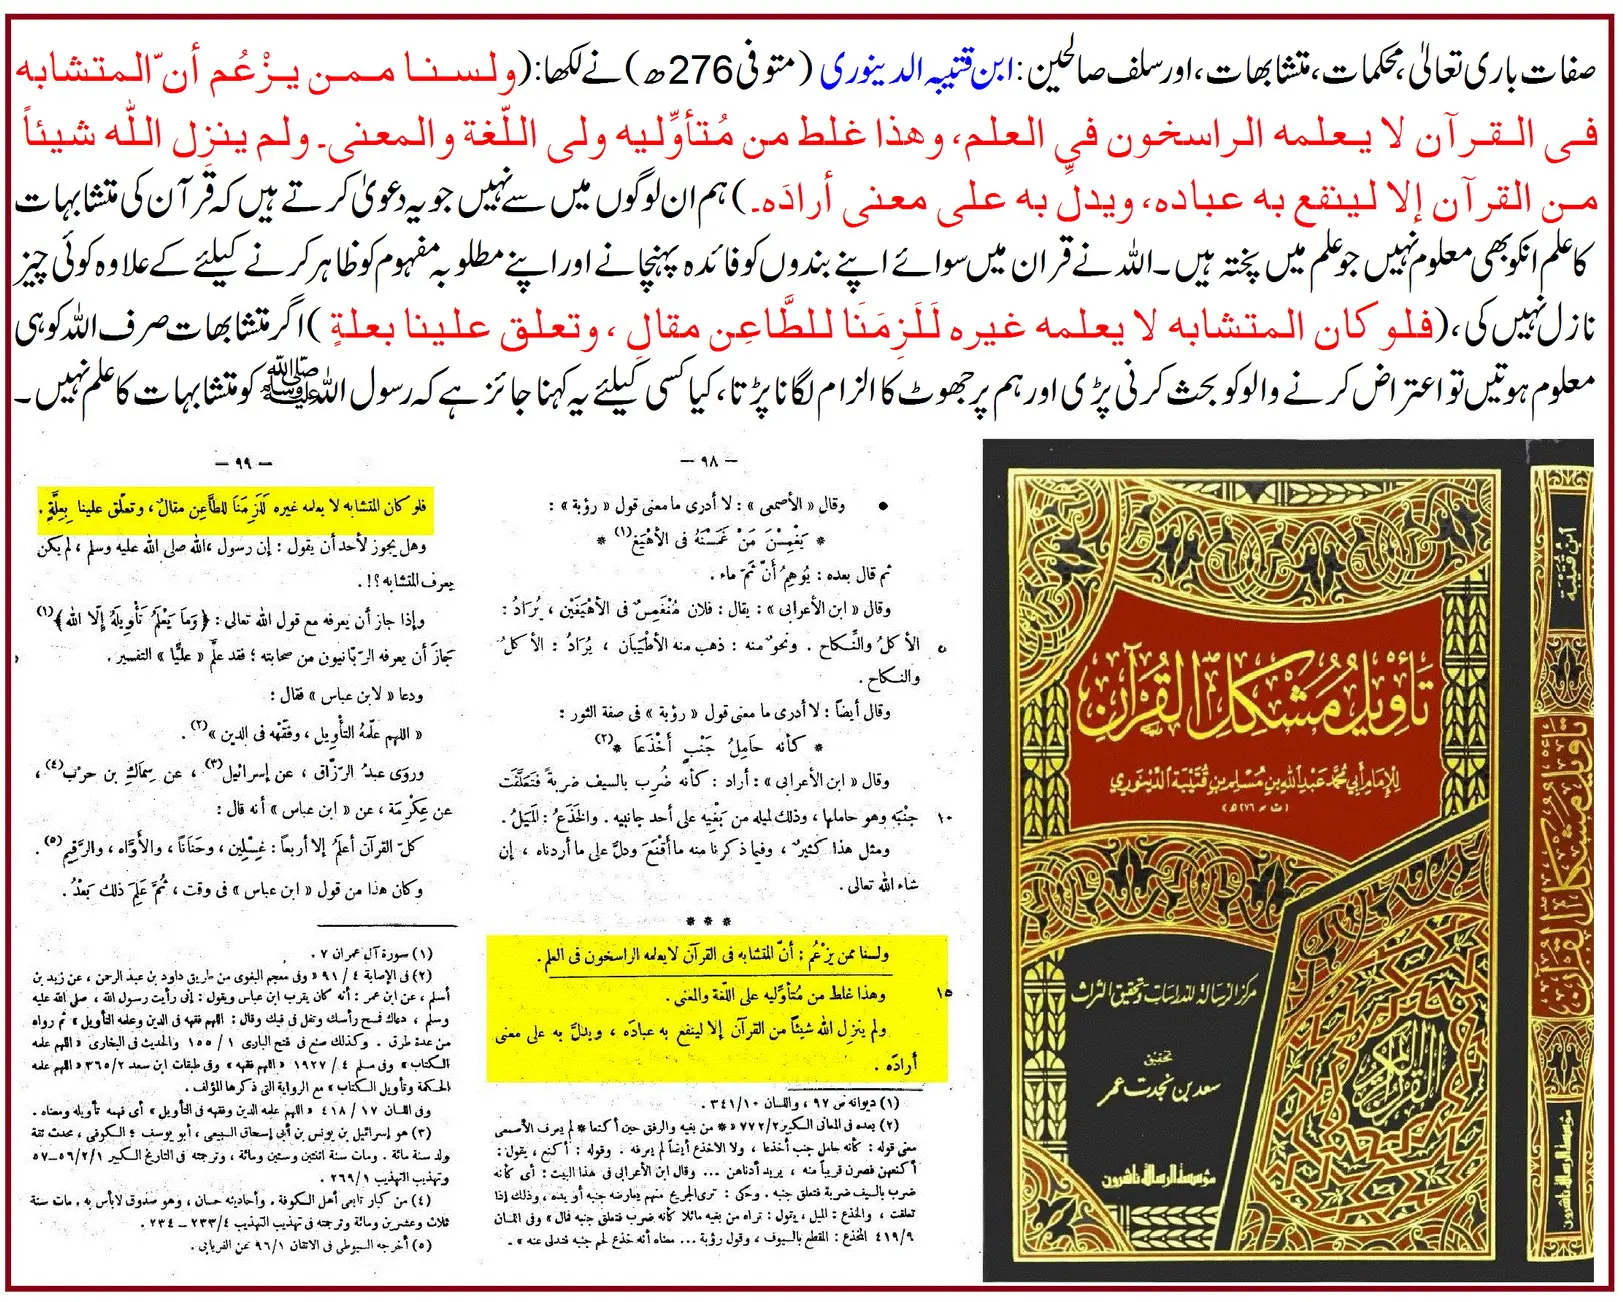 صفات باری تعالیٰ، محکمات، متشابھات، اور سلف صالحین: ابن قتیبہ الدینوری (متوفی 276ھ) نے لکھا: (ولسنا ممن يزْعُم أنّ المتشابه
فى القرآن لا يعلمه الراسخون في العلم، وهذا غلط من مُتأوِّليه ولى اللّغة والمعنى۔ ولم ينزِل اللّه شيئاً
من القرآن إلا لينفع به عباده، ويدلِّ به على معنى أرادَه۔) ہم ان لوگوں میں سے نہیں جو یہ دعویٰ کرتے ہیں کہ قرآن کی متشابہات
کا علم انکو بھی معلوم نہیں جو علم میں پختہ ہیں۔ اللہ نے قران میں سوائے اپنے بندوں کو فائدہ پہنچانے اور اپنے مطلوبہ مفہوم کو ظاہر کرنے کیلئے کے علاوہ کوئی چیز
نازل نہیں کی، (فلو كان المتشابه لا يعلمه غيره لَلَزِمَنَا للطَّاعِن مقال، وتعلق علينا بعلةٍ) اگر متشابھات صرف اللہ کو ہی
معلوم ہوتیں تو اعتراض کرنے والو کو بحث کرنی پڑی اور ہم پر جھوٹ کا الزام لگانا پڑتا، کیا کسی کیلئے یہ کہنا جائز ہے کہ رسول اللہ ﷺ کو متشابہات کا علم نہیں۔
— ٩٨ —
• وقال « الأصمعى » : لا أدرى ما معنى قول « رؤبة » :
* يَغْمِسْنَ مَنْ غَمَسْنَهُ فى الأهْيَغِ (١) *
ثم قال بعده : يُوهِمُ أَنَّ ثَمّ ماء .
وقال « ابن الأعرابى » : يقال : فلان مُنْغَمِسٌ فى الأهْيَغَيْن ، يُرَادُ :
٥ الأكلُ والنِّكاح . ونحوٌ منه : ذهب منه الأطْيَبَان ، يُرَادُ : الأكلُ
والنكاح .
وقال أيضاً : لا أدرى ما معنى قول « رؤبة » فى صفة الثور :
* كأنه حَامِلُ جَنْبٍ أَخْذَعَا * (٢)
وقال « ابن الأعرابى » : أراد : كأنه ضُرِب بالسيف ضربةً فتعلَّقَت
١٠ جنْبَه وهو حاملها ، وذلك لميله من بَغْيِه على أحد جانبيه . والخَذَعُ : المَيَلُ .
ومثل هذا كثيرٌ ، وفيما ذكرنا منه ما أقْنَعَ ودلَّ على ما أردناه ، إن
شاء الله تعالى .
* * *
ولسنا ممن يزْعُم : أنّ المتشابه فى القرآن لا يعلمه الراسخون فى العلم .
١٥ وهذا غلط من مُتأوِّليه على اللغة والمعنى .
ولم ينزل الله شيئاً من القرآن إلا لينفع به عبادَه ، ويدلَّ به على معنى
أرادَه .
(١) ديوانه ص ٩٧ ، واللسان ٣٤١/١٠ .
(٢) بعده فى المعانى الكبير ٧٧٢/٢ « * من بغيه والرفق حين أكنعا * لم يعرف الأصمعى
معنى قوله : كأنه حامل جنب أخذعا ، ولا الاخذع أيضاً لم يعرفه . وقوله : أكنع ، يقول :
أكنعهن فصرن قريباً منه ، يريد أدناهن ... وقال ابن الأعرابى فى هذا البيت : أى كأنه
ضرب بالسيف ضربة فتعلق جنبه . وحكى : ترى الجريح منهم يعارضه جنبه أو يده ، وذلك إذا
تعلقت ، والخذع : الميل ، يقول : تراه من بغيه مائلا كأنه ضرب فتعلق جنبه فمال » وفى اللسان
٤١٩/٩ المخذع : المقطع بالسيوف ، وقول رؤبة ... معناه أنه خذع لحم جنبه فتدلى عنه » .
— ٩٩ —
فلو كان المتشابه لا يعلمه غيره لَلَزِمَنَا للطَّاعِن مقالٌ ، وتعلّق علينا بِعِلَّةٍ .
وهل يجوز لأحد أن يقول : إن رسول الله صلى الله عليه وسلم ، لم يكن
يعرف المتشابه ؟! .
وإذا جاز أن يعرفه مع قول الله تعالى : ﴿ وَمَا يَعْلَمُ تَأْوِيلَهُ إلَّا الله ﴾ (١)
جَازَ أن يعرفه الرّبانيون من صحابته ؛ فقد علّم « عليًّا » التفسير .
ودعا « لابن عباس » فقال :
« اللهم علِّمه التأويل ، وفقّهه فى الدين » (٢) .
وروَى عبدُ الرّزاق ، عن إسرائيل (٣) ، عن سِمَاك بن حرْب (٤) ،
عن عِكْرِمَة ، عن « ابن عباس » أنه قال :
كلّ القرآن أعلمُ إلا أربعاً : غِسْلِين ، وحَنَاناً ، والأوَّاه ، والرَّقِيم (٥) .
وكان هذا من قول « ابن عباس » فى وقت ، ثُمَّ عَلِمَ ذلك بَعْدُ .
(١) سورة آل عمران ٧ .
(٢) فى الإصابة ٤ / ٩١ « وفى معجم البغوى من طريق داود بن عبد الرحمن ، عن زيد بن
أسلم ، عن ابن عمر : أنه كان يقرب ابن عباس ويقول : إنى رأيت رسول الله ، صلى الله عليه
وسلم ، دعاك فمسح رأسك وتفل فى فيك وقال : اللهم فقهه فى الدين وعلمه التأويل » ثم رواه
من عدة طرق . وكذلك صنع فى فتح البارى ١ / ١٥٥ والحديث فى البخارى « اللهم علمه
الكتاب » وفى مسلم ٤ / ١٩٢٧ « اللهم فقهه » وفى طبقات ابن سعد ٣٦٥/٢ « اللهم علمه
الحكمة وتأويل الكتاب » مع الرواية التى ذكرها المؤلف .
وفى اللسان ١٧ / ٤١٨ « اللهم علمه الدين وفقهه فى التأويل » أى فهمه تأويله ومعناه .
(٣) هو إسرائيل بن يونس بن أبى إسحاق السبيعى ، أبو يوسف الكوفى ، محدث ثقة
ولد سنة مائة . ومات سنة اثنتين وستين ومائة ، وترجمته فى التاريخ الكبير ٥٦/٢/١ – ٥٧
وتهذيب التهذيب ٢٦٩/١ .
(٤) من كبار تابعى أهل الكوفة . وأحاديثه حسان ، وهو صدوق لا بأس به . مات سنة
ثلاث وعشرين ومائة وترجمته فى تهذيب التهذيب ٢٣٣/٤ – ٢٣٤ .
(٥) أخرجه السيوطى فى الاتقان ٩٦/١ عن الفريابى .
تأويل مشكل القرآن
للإمام أبي محمد عبد الله بن مسلم بن قتيبة الدينوري
(ت ٢٧٦ هـ)
مركز الرسالة للدراسات وتحقيق التراث
تحقيق
سعد بن نجدت عمر
القرآن الكريم
مؤسسة الرسالة ناشرون
ابن قتيبة
تأويل مشكل القرآن
مؤسسة الرسالة ناشرون